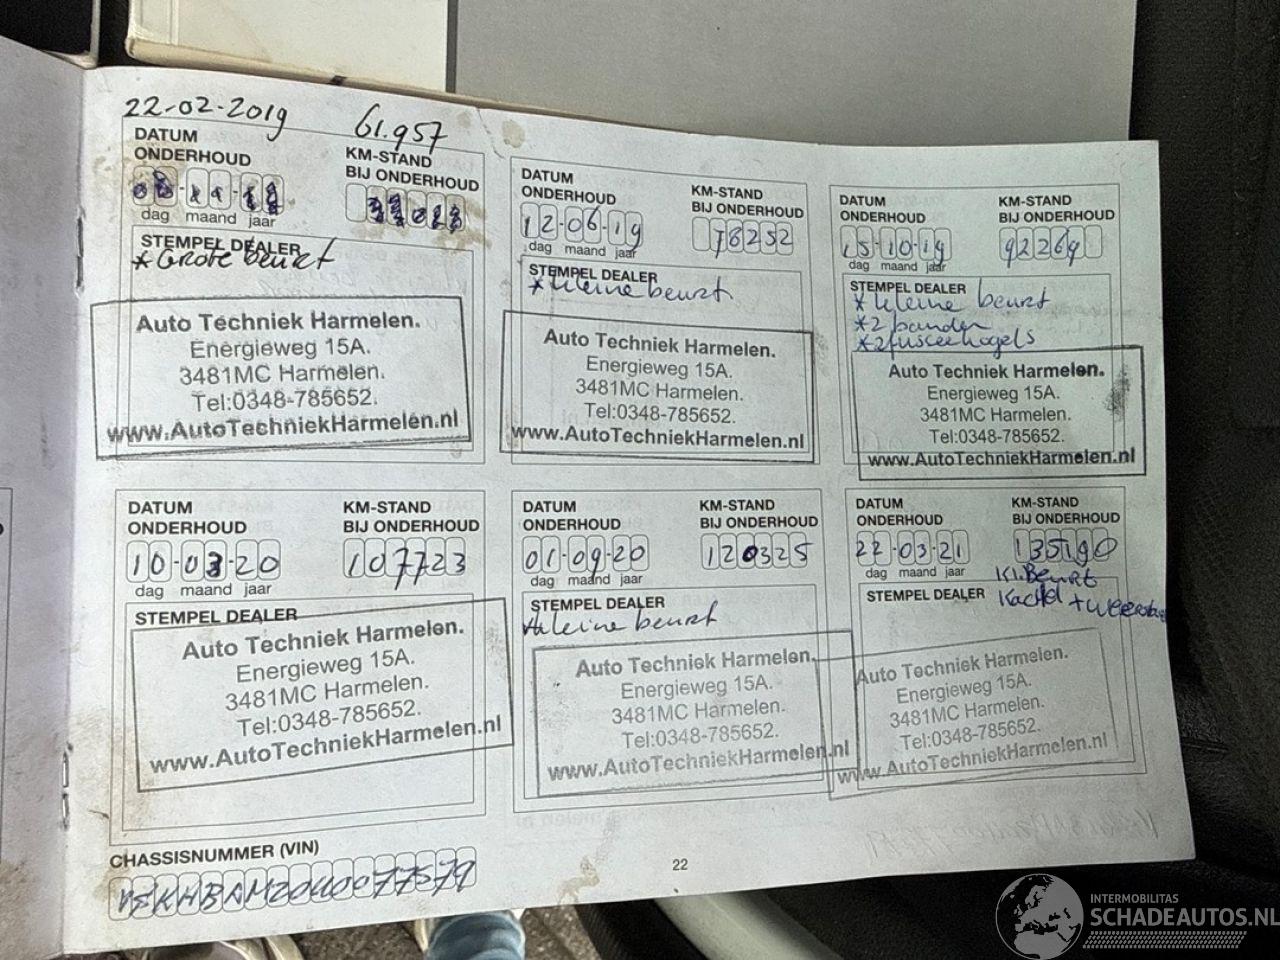 22-02-2019 61.957
DATUM ONDERHOUD
KM-STAND BIJ ONDERHOUD
dag maand jaar
STEMPEL DEALER
*Grote beurt
Auto Techniek Harmelen.
Energieweg 15A.
3481MC Harmelen.
Tel:0348-785652.
www.AutoTechniekHarmelen.nl
DATUM ONDERHOUD
KM-STAND BIJ ONDERHOUD
12-06-19 78252
dag maand jaar
STEMPEL DEALER
*kleine beurt
Auto Techniek Harmelen.
Energieweg 15A.
3481MC Harmelen.
Tel:0348-785652.
www.AutoTechniekHarmelen.nl
DATUM ONDERHOUD
KM-STAND BIJ ONDERHOUD
15-10-19 92269
dag maand jaar
STEMPEL DEALER
*kleine beurt
*2 banden
*2 fuseekogels
Auto Techniek Harmelen.
Energieweg 15A.
3481MC Harmelen.
Tel:0348-785652.
www.AutoTechniekHarmelen.nl
DATUM ONDERHOUD
KM-STAND BIJ ONDERHOUD
10-03-20 107723
dag maand jaar
STEMPEL DEALER
Auto Techniek Harmelen.
Energieweg 15A.
3481MC Harmelen.
Tel:0348-785652.
www.AutoTechniekHarmelen.nl
DATUM ONDERHOUD
KM-STAND BIJ ONDERHOUD
01-09-20 120325
dag maand jaar
STEMPEL DEALER
kleine beurt
Auto Techniek Harmelen.
Energieweg 15A.
3481MC Harmelen.
Tel:0348-785652.
www.AutoTechniekHarmelen.nl
DATUM ONDERHOUD
KM-STAND BIJ ONDERHOUD
22-03-21 135190
dag maand jaar
Kl. Beurt
STEMPEL DEALER Kachel +
Auto Techniek Harmelen.
Energieweg 15A.
3481MC Harmelen.
Tel:0348-785652.
www.AutoTechniekHarmelen.nl
CHASSISNUMMER (VIN)
22
INTERMOBILITAS
SCHADEAUTOS.NL